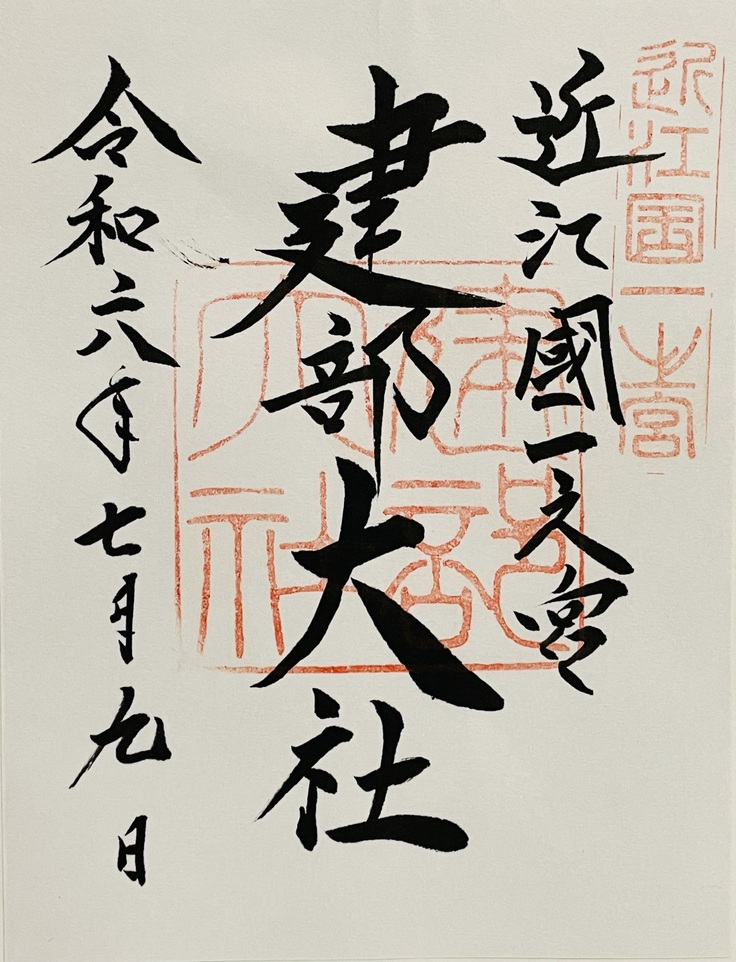 近江国一之宮
近江國一之宮
建部大社
建部大社
令和六年七月九日